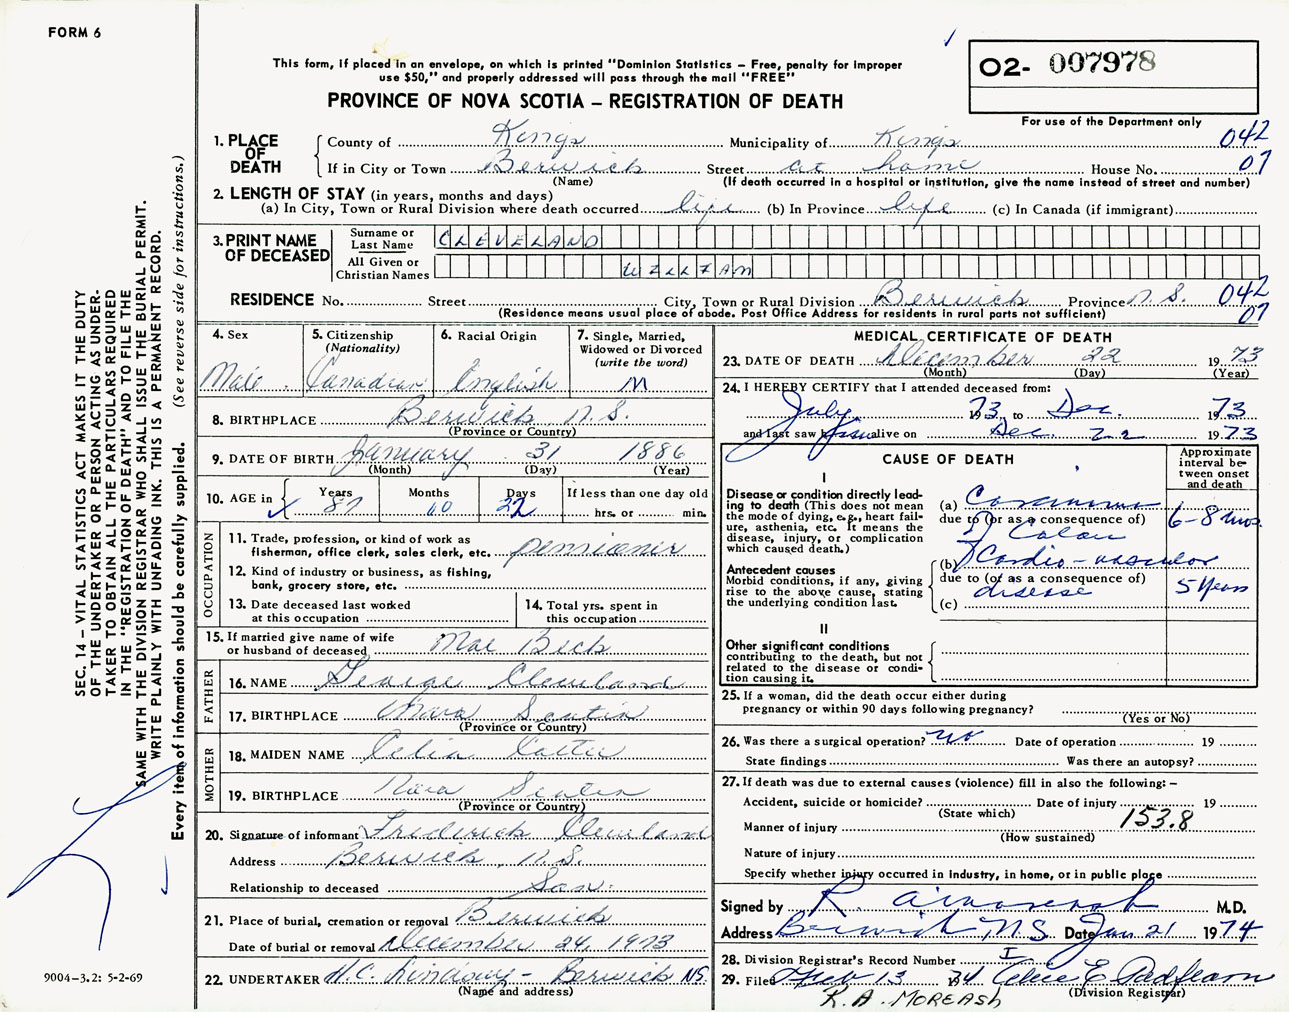 FORM 6
This form, if placed in an envelope, on which is printed "Dominion Statistics – Free, penalty for improper
use $50," and properly addressed will pass through the mail "FREE"
PROVINCE OF NOVA SCOTIA – REGISTRATION OF DEATH
O2- 007978
For use of the Department only
1. PLACE OF DEATH
County of Kings Municipality of Kings 042
If in City or Town Berwick Street at home House No. 07
(Name) (If death occurred in a hospital or institution, give the name instead of street and number)
2. LENGTH OF STAY (in years, months and days)
(a) In City, Town or Rural Division where death occurred life (b) In Province life (c) In Canada (if immigrant)
3. PRINT NAME OF DECEASED
Surname or Last Name CLEVELAND
All Given or Christian Names WILLIAM
RESIDENCE No. Street City, Town or Rural Division Berwick Province N.S. 042
(Residence means usual place of abode. Post Office Address for residents in rural parts not sufficient) 07
4. Sex
Male
5. Citizenship
(Nationality)
Canadian
6. Racial Origin
English
7. Single, Married,
Widowed or Divorced
(write the word)
M
8. BIRTHPLACE Berwick N.S.
(Province or Country)
9. DATE OF BIRTH January 31 1886
(Month) (Day) (Year)
10. AGE in Years 87 Months 10 Days 22 If less than one day old
hrs. or min.
OCCUPATION
11. Trade, profession, or kind of work as
fisherman, office clerk, sales clerk, etc. pensioner
12. Kind of industry or business, as fishing,
bank, grocery store, etc.
13. Date deceased last worked
at this occupation
14. Total yrs. spent in
this occupation
15. If married give name of wife
or husband of deceased Mae Beck
FATHER
16. NAME George Cleveland
17. BIRTHPLACE Nova Scotia
(Province or Country)
MOTHER
18. MAIDEN NAME Celia
19. BIRTHPLACE Nova Scotia
(Province or Country)
20. Signature of informant Frederick Cleveland
Address Berwick, N.S.
Relationship to deceased Son.
21. Place of burial, cremation or removal Berwick
Date of burial or removal December 24, 1973
22. UNDERTAKER H.C. Lindsay - Berwick NS.
(Name and address)
MEDICAL CERTIFICATE OF DEATH
23. DATE OF DEATH December 22 1973
(Month) (Day) (Year)
24. I HEREBY CERTIFY that I attended deceased from:
July 1973 to Dec. 1973
and last saw him alive on Dec. 22 1973
CAUSE OF DEATH
Approximate
interval be-
tween onset
and death
I
Disease or condition directly lead-
ing to death (This does not mean
the mode of dying, e.g., heart fail-
ure, asthenia, etc. It means the
disease, injury, or complication
which caused death.)
(a) Carcinoma 6-8 mos.
due to (or as a consequence of)
of Colon
Antecedent causes
Morbid conditions, if any, giving
rise to the above cause, stating
the underlying condition last.
(b) Cardio-vascular
due to (or as a consequence of)
disease 5 Years
(c)
II
Other significant conditions
contributing to the death, but not
related to the disease or condi-
tion causing it.
25. If a woman, did the death occur either during
pregnancy or within 90 days following pregnancy?
(Yes or No)
26. Was there a surgical operation? no Date of operation 19
State findings Was there an autopsy?
27. If death was due to external causes (violence) fill in also the following: –
Accident, suicide or homicide? Date of injury 19
(State which)
Manner of injury 153.8
(How sustained)
Nature of injury
Specify whether injury occurred in industry, in home, or in public place
Signed by R. M.D.
Address Berwick, N.S. Date Jan 21 1974
28. Division Registrar's Record Number 1
29. Filed Feb 13 1974
(Division Registrar)
R.A. MOREASH
SEC. 14 – VITAL STATISTICS ACT MAKES IT THE DUTY
OF THE UNDERTAKER OR PERSON ACTING AS UNDER-
TAKER TO OBTAIN ALL THE PARTICULARS REQUIRED
IN THE "REGISTRATION OF DEATH" AND TO FILE THE
SAME WITH THE DIVISION REGISTRAR WHO SHALL ISSUE THE BURIAL PERMIT.
WRITE PLAINLY WITH UNFADING INK. THIS IS A PERMANENT RECORD.
Every item of information should be carefully supplied. (See reverse side for instructions.)
9004–3.2: 5-2-69